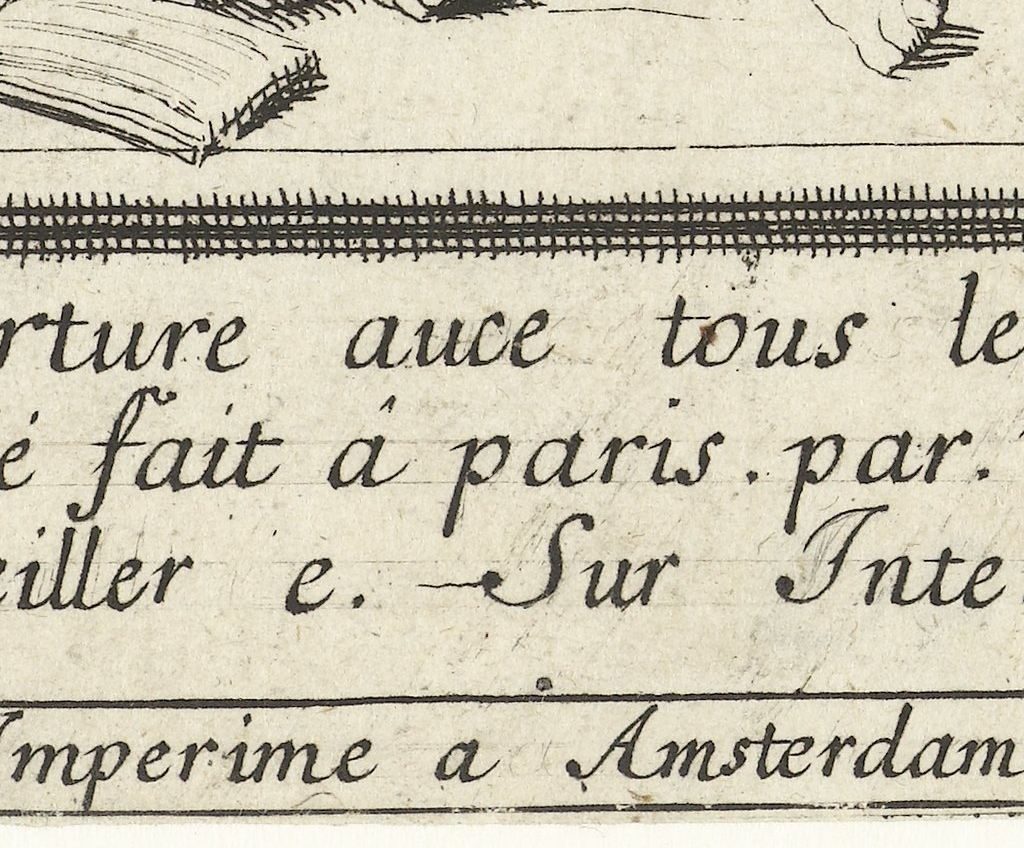 rture auce tous le
é fait â paris. par.
eiller e. Sur Inte
Imperime a Amsterdam